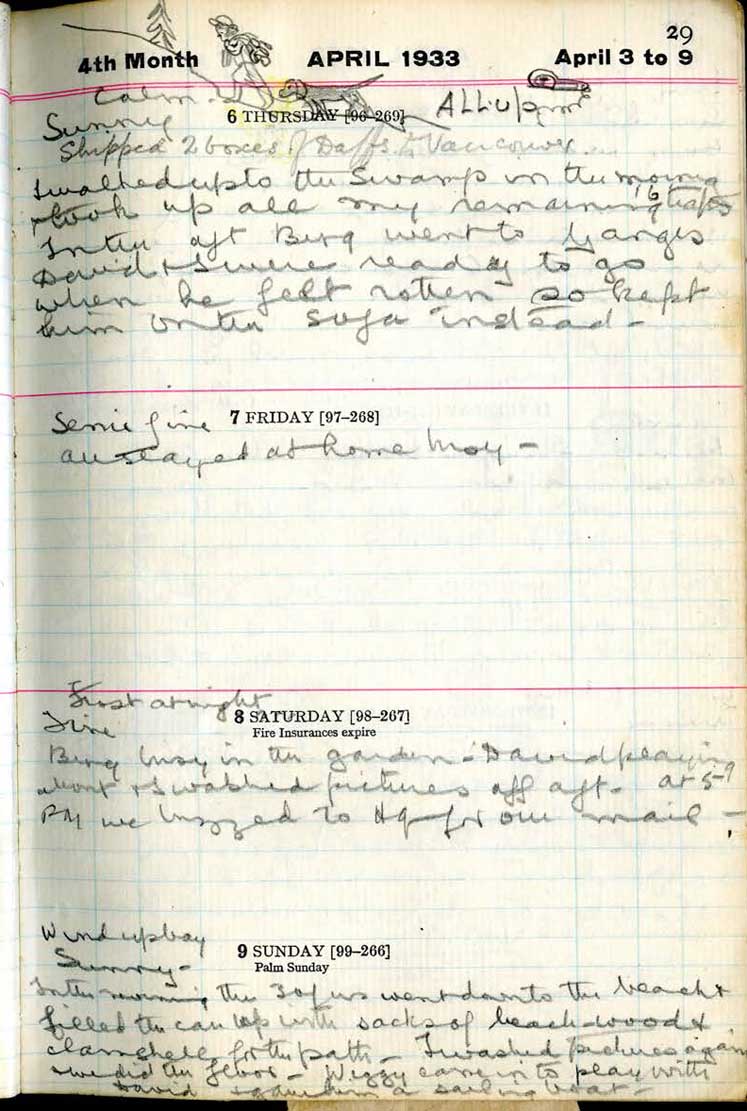 29
4th Month APRIL 1933 April 3 to 9
Calm
ALL-UP
6 THURSDAY [96–269]
Sunny
Shipped 2 boxes of Daffs to Vancouver
I walked up to the Swamp in the morning
& took up all my remaining 16 traps
In the aft Berg went to Ganges
David & I were ready to go
when he felt rotten so kept
him on the sofa instead –
7 FRIDAY [97–268]
Semi fine
all stayed at home busy –
Frost at night
8 SATURDAY [98–267]
Fine
Fire Insurances expire
Berg busy in the garden – David playing
about & I washed pictures off aft – at 5
PM we buzzed to Hq for our mail –
Wind up bay
9 SUNDAY [99–266]
Sunny –
Palm Sunday
In the morning the 3 of us went down to the beach &
filled the car up with sacks of beach-wood &
clamshell for the path – I washed pictures again
& we did the floor – Weggy came in to play with
David & gave him a sailing boat –